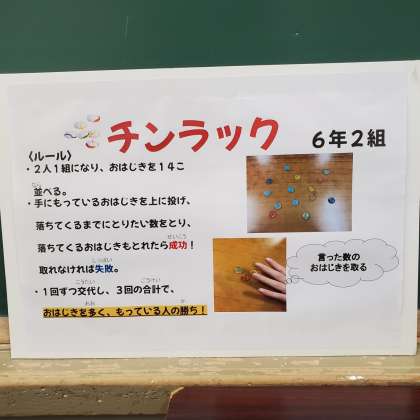 チンラック
6年2組
〈ルール〉
・2人1組になり、おはじきを14こ
並べる。
・手にもっているおはじきを上に投げ、
落ちてくるまでにとりたい数をとり、
落ちてくるおはじきもとれたら成功！
取れなければ失敗。
・1回ずつ交代し、3回の合計で、
おはじきを多く、もっている人の勝ち！
言った数の
おはじきを取る